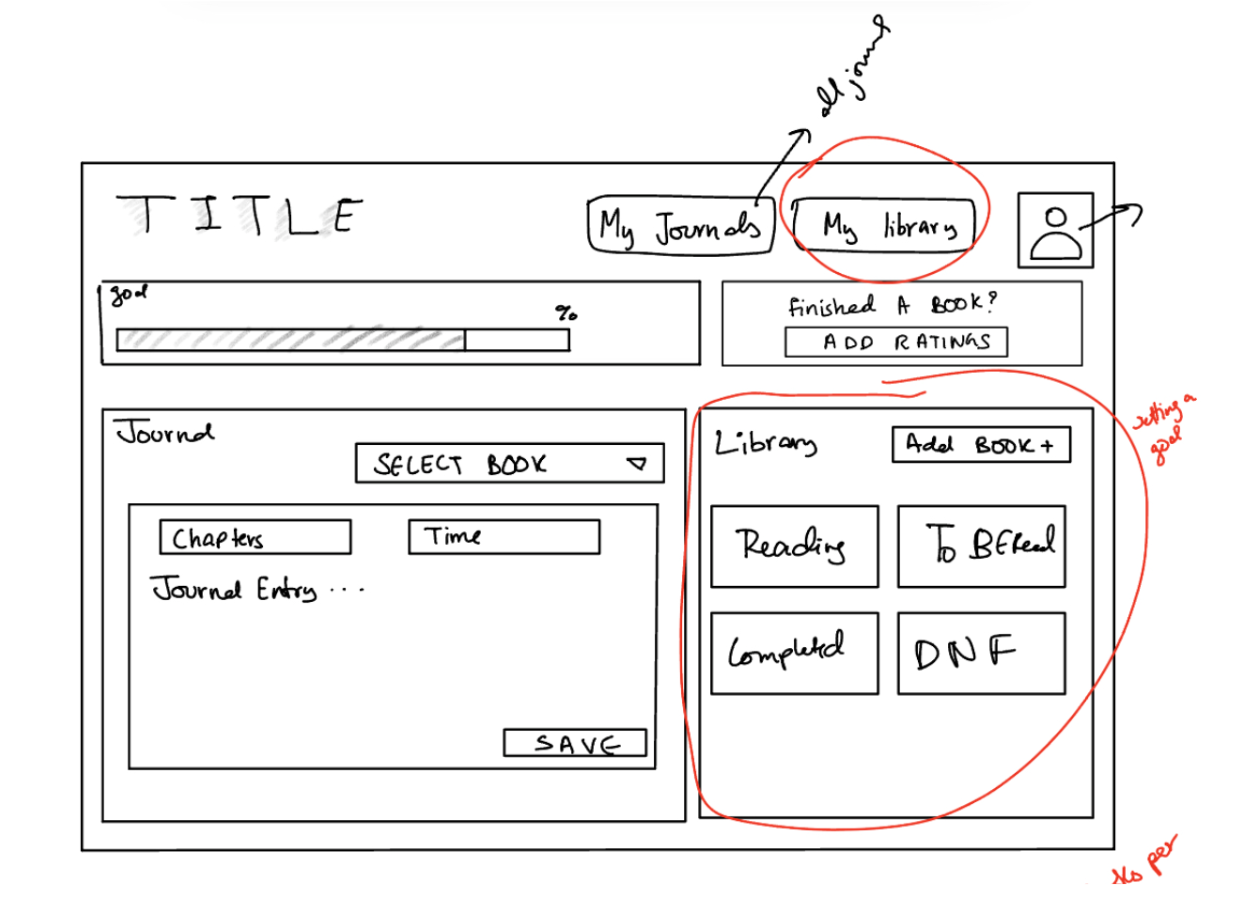 all journ
TITLE
My Journals
My library
goal
%
finished A BOOK?
ADD RATINGS
Journal
SELECT BOOK
Chapters
Time
Journal Entry ...
SAVE
Library
Add BOOK+
Reading
To BERead
Completed
DNF
setting a
goal
per